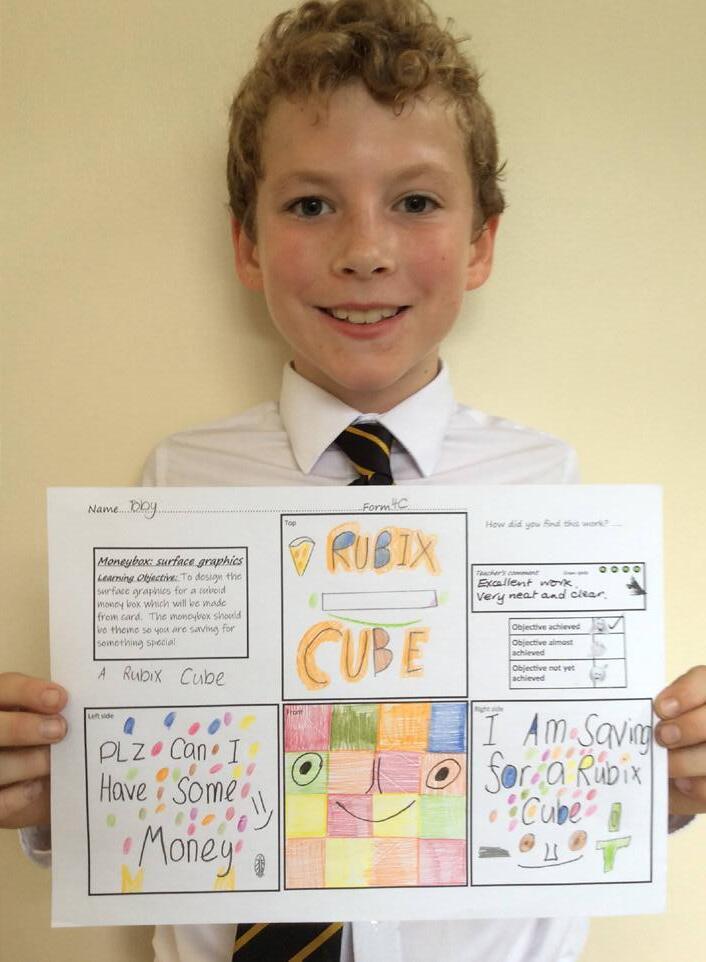 Name Toby
Form 4C
Moneybox: surface graphics
Learning Objective: To design the
surface graphics for a cuboid
money box which will be made
from card. The moneybox should
be theme so you are saving for
something special
A Rubix Cube
Top
RUBIX
CUBE
How did you find this work? ....
Teacher's comment
Excellent work.
Very neat and clear.
Objective achieved
Objective almost
achieved
Objective not yet
achieved
Left side
PLZ Can I
Have Some
Money
Front
Right side
I Am Saving
for a Rubix
Cube